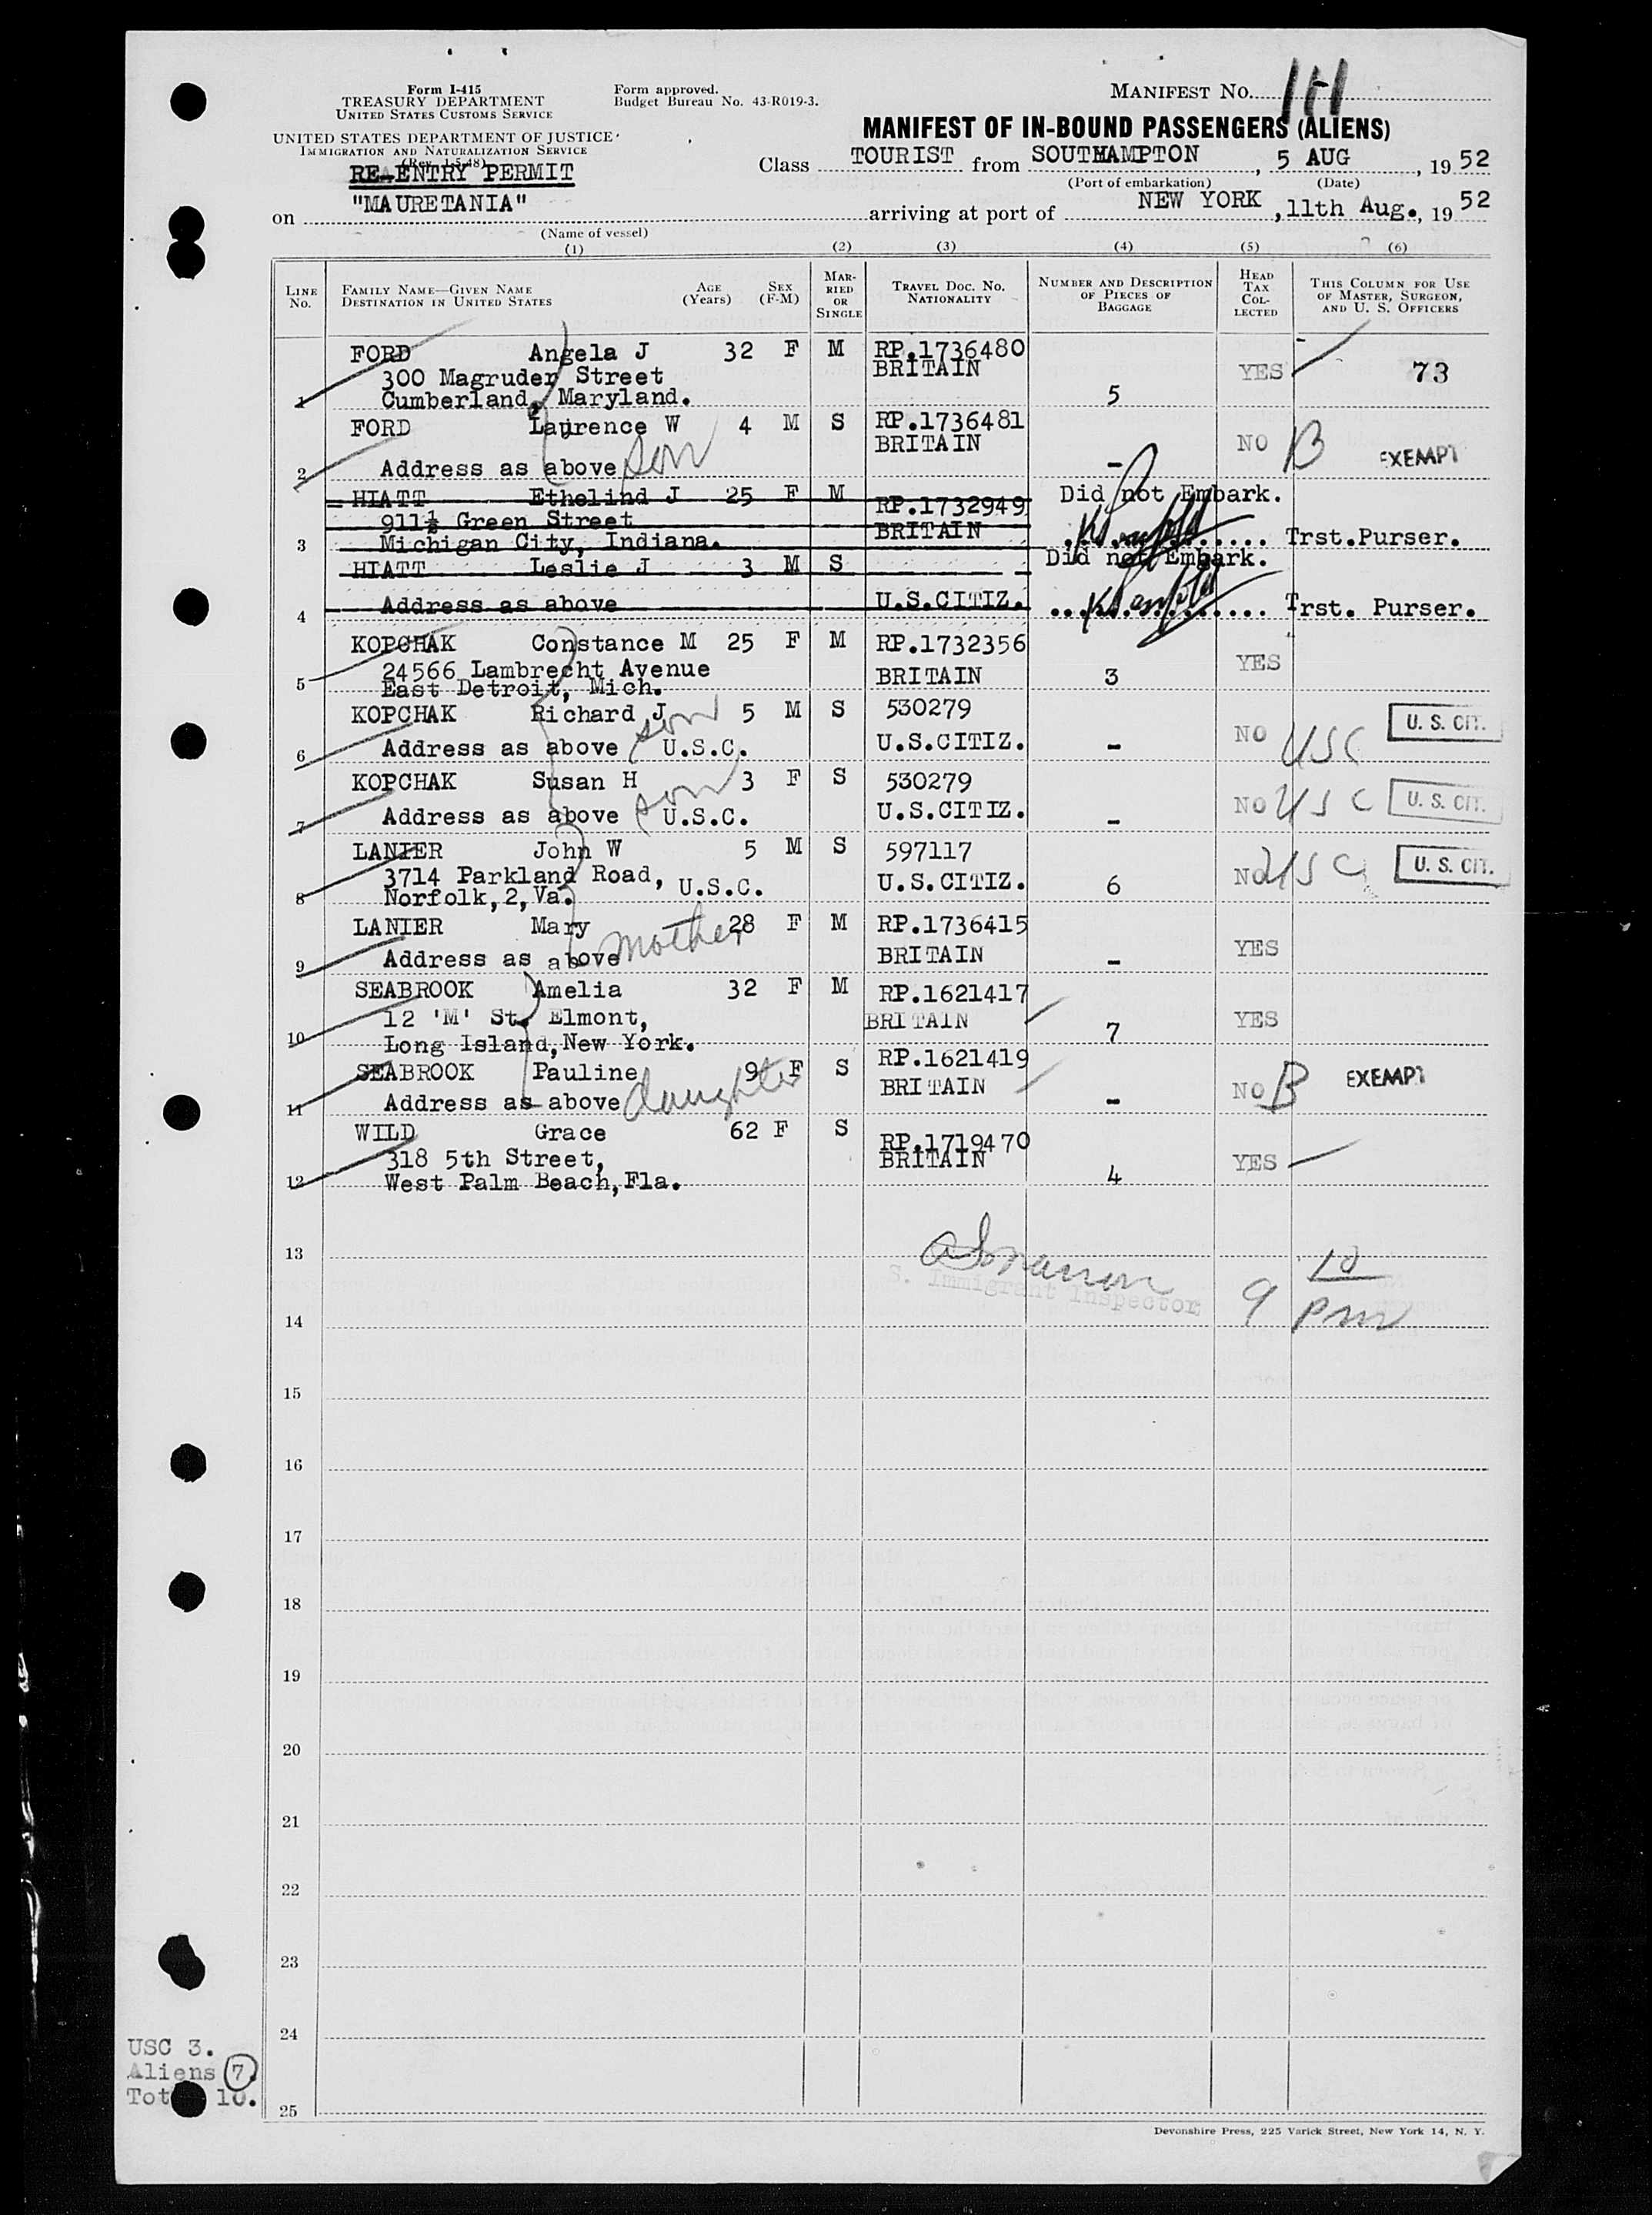 Form I-415
TREASURY DEPARTMENT
UNITED STATES CUSTOMS SERVICE
UNITED STATES DEPARTMENT OF JUSTICE
IMMIGRATION AND NATURALIZATION SERVICE
(Rev. 1-5-48)
RE-ENTRY PERMIT
Form approved.
Budget Bureau No. 43-R019-3.
MANIFEST NO.
MANIFEST OF IN-BOUND PASSENGERS (ALIENS)
Class TOURIST from SOUTHAMPTON, 5 AUG, 1952
(Port of embarkation) (Date)
on "MAURETANIA" arriving at port of NEW YORK, 11th Aug., 1952
(Name of vessel)
(1) (2) (3) (4) (5) (6)
LINE NO. FAMILY NAME—GIVEN NAME DESTINATION IN UNITED STATES AGE (Years) SEX (F-M) MARRIED OR SINGLE TRAVEL DOC. NO. NATIONALITY NUMBER AND DESCRIPTION OF PIECES OF BAGGAGE HEAD TAX COLLECTED THIS COLUMN FOR USE OF MASTER, SURGEON, AND U. S. OFFICERS
FORD Angela J 32 F M RP.1736480
300 Magruder Street BRITAIN YES 73
1 Cumberland, Maryland. 5
FORD Laurence W 4 M S RP.1736481
BRITAIN NO B EXEMPT
2 Address as above son -
HIATT Ethelind J 25 F M RP.1732949 Did not Embark.
911½ Green Street BRITAIN
3 Michigan City, Indiana. Trst.Purser.
HIATT Leslie J 3 M S Did not Embark.
4 Address as above U.S.CITIZ. Trst. Purser.
KOPCHAK Constance M 25 F M RP.1732356
24566 Lambrecht Avenue BRITAIN 3 YES
5 East Detroit, Mich.
KOPCHAK Richard J 5 M S 530279 U. S. CIT.
6 Address as above son U.S.C. U.S.CITIZ. - NO USC
KOPCHAK Susan H 3 F S 530279
7 Address as above son U.S.C. U.S.CITIZ. - NO USC U. S. CIT.
LANIER John W 5 M S 597117
3714 Parkland Road, U.S.C. U.S.CITIZ. 6 NO USC U. S. CIT.
8 Norfolk,2,Va.
LANIER Mary 28 F M RP.1736415
9 Address as above mother BRITAIN - YES
SEABROOK Amelia 32 F M RP.1621417
12 'M' St. Elmont, BRITAIN 7 YES
10 Long Island,New York.
SEABROOK Pauline 9 F S RP.1621419
11 Address as above daughter BRITAIN - NO B EXEMPT
WILD Grace 62 F S RP.1719470
318 5th Street, BRITAIN YES
12 West Palm Beach,Fla. 4
13
S. Immigrant Inspector 9 10 pm
14
15
16
17
18
19
20
21
22
23
24
25
USC 3.
Aliens 7.
Tot 10.
Devonshire Press, 225 Varick Street, New York 14, N. Y.